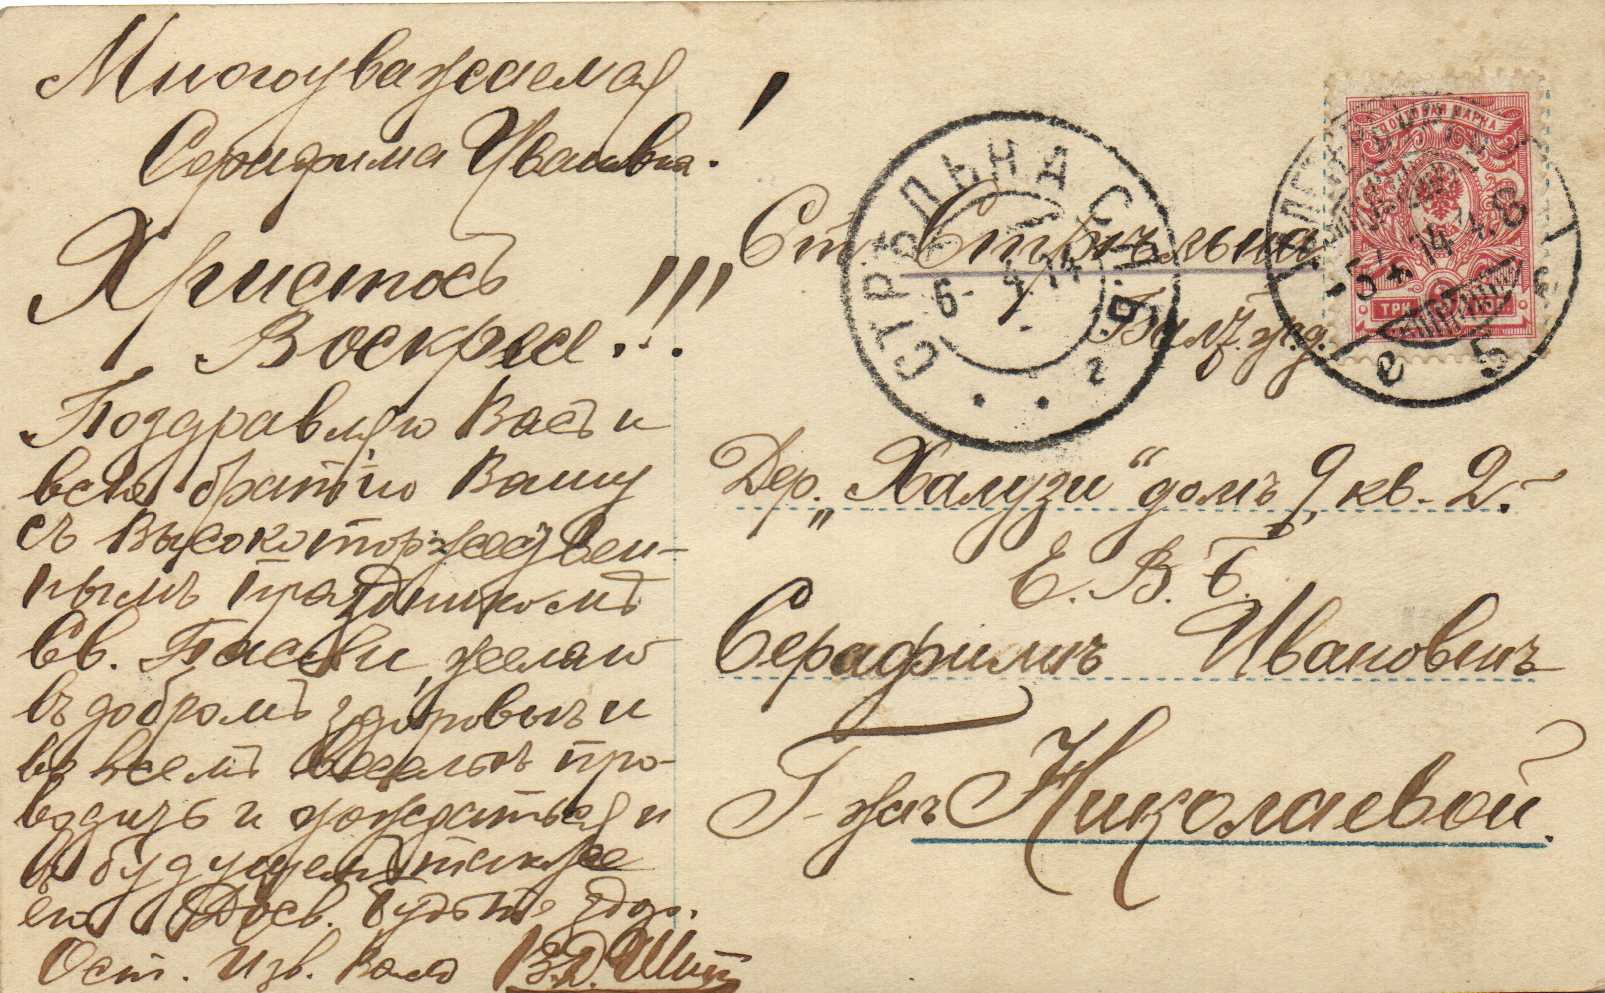 Многоуважаемая
Серафима Ивановна!
Христосъ
Воскресе!!!
Поздравляю Васъ и
всю братію Вашу
съ Высокоторжествен-
нымъ праздникомъ
Св. Пасхи, желаю
въ добромъ здоровьи и
во всемъ весельѣ про-
водить и дождаться и
въ будущемъ также
его. Досв. будьте здор.
Ост. Изв. Вамъ В.Д. Шит
Ст. Стрѣльна
Балт. ж.д.
Дер. „Халузи" домъ 9, кв. 2.
Е. В. Б.
Серафимѣ Ивановнѣ
Г-жѣ Николаевой.
СТРѢЛЬНА С.П.Б.
6- 4.14
2
ПОЧТОВАЯ МАРКА
3
5 4 14 8
е 5